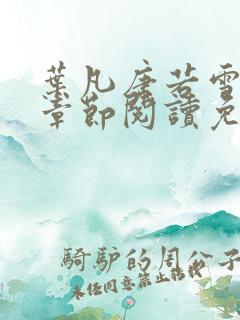 葉凡唐若雪
章節閱讀免
騎驢的周公子
未經同意禁止轉載